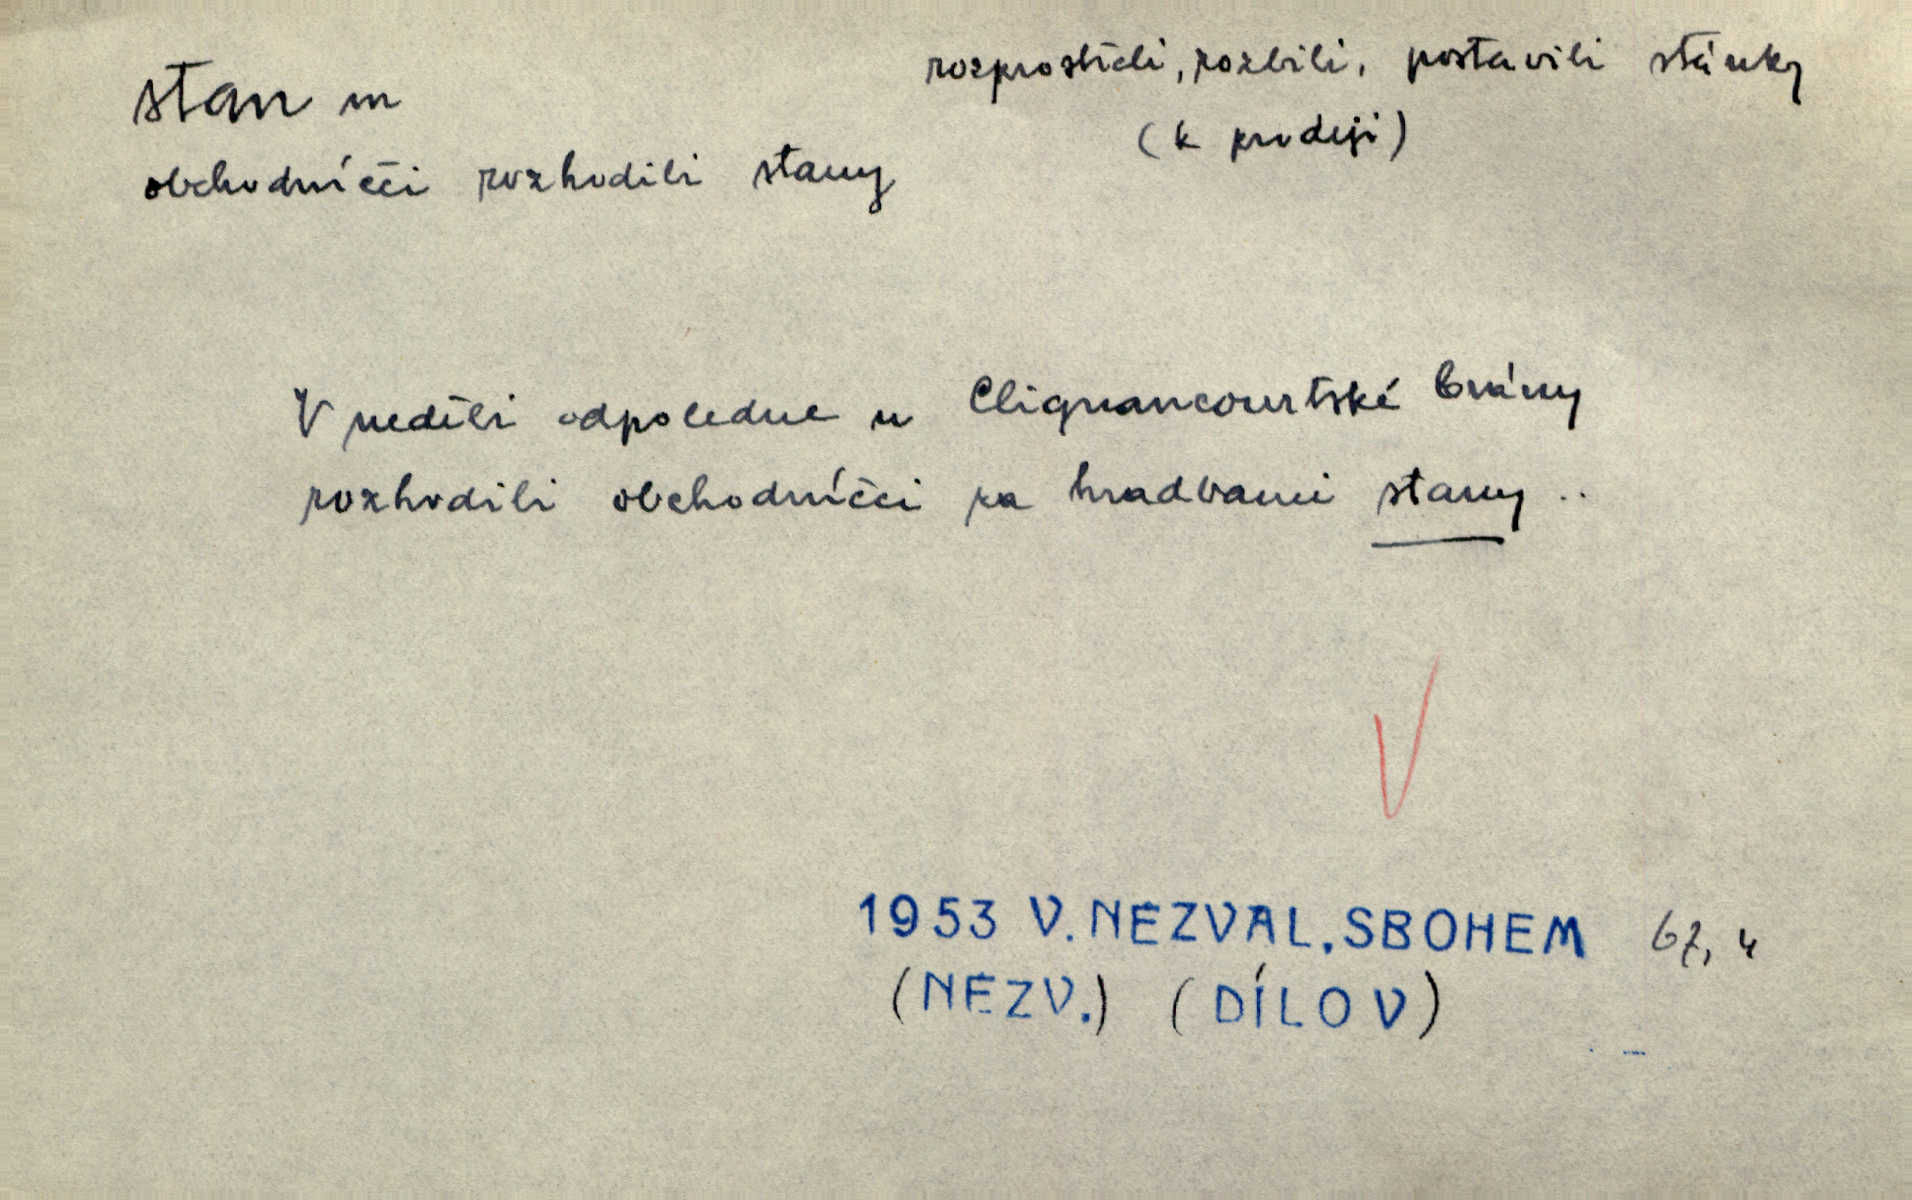 stan m
rozprostřeli, rozbili, postavili stánky
(k prodeji)
obchodníčci rozhodili stany
V neděli odpoledne u Clignancourtské brány
rozhodili obchodníčci za hradbami stany ..
V
1953 V. NEZVAL, SBOHEM 67, 4
(NEZV.) (DÍLO V)